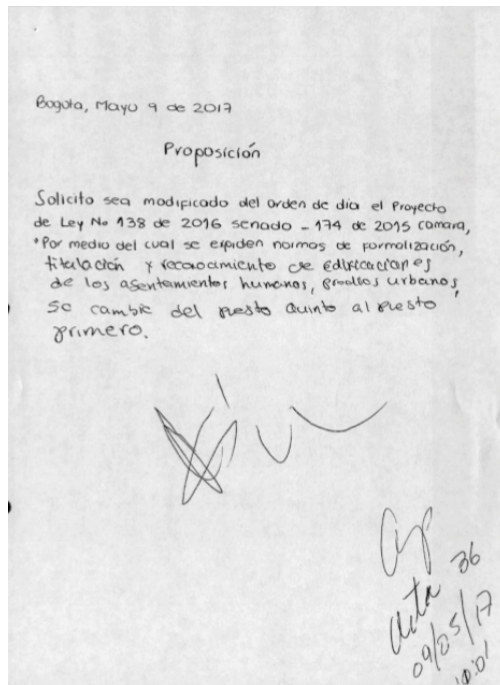 Bogota, Mayo 9 de 2017
Proposición
Solicito sea modificado del orden de dia el Proyecto
de Ley No 138 de 2016 senado - 174 de 2015 camara,
"Por medio del cual se expiden normas de formalización,
titulación y reconocimiento de edificaciones
de los asentamientos humanos, predios urbanos,
se cambie del puesto Quinto al puesto
primero.
Acta 36
09/05/17